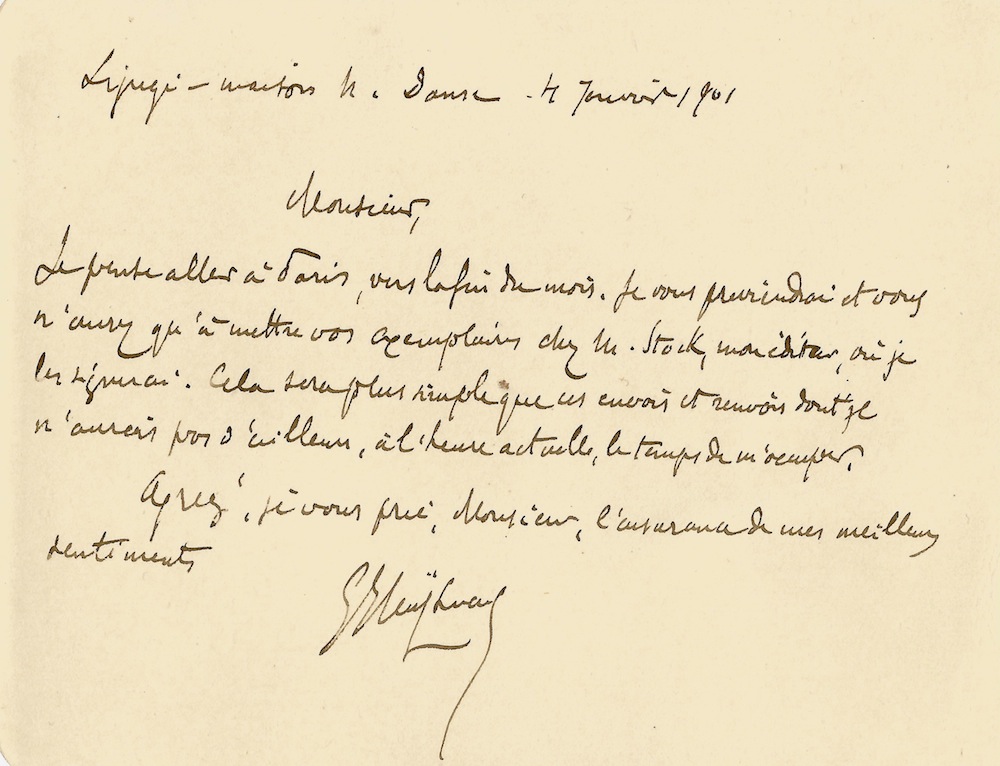 Ligugé – maison N. Dame – 4 Janvier 1901
Monsieur,
Je pense aller à Paris, vers la fin du mois. Je vous previendrai et vous
n'aurez qu'à mettre vos exemplaires chez M. Stock, mon éditeur, où je
les signerai. Cela sera plus simple que ces envois et renvois dont je
n'aurais pas d'ailleurs, à l'heure actuelle, le temps de m'occuper.
Agréez, je vous prie, Monsieur, l'assurance de mes meilleurs
sentiments
G J Huysmans